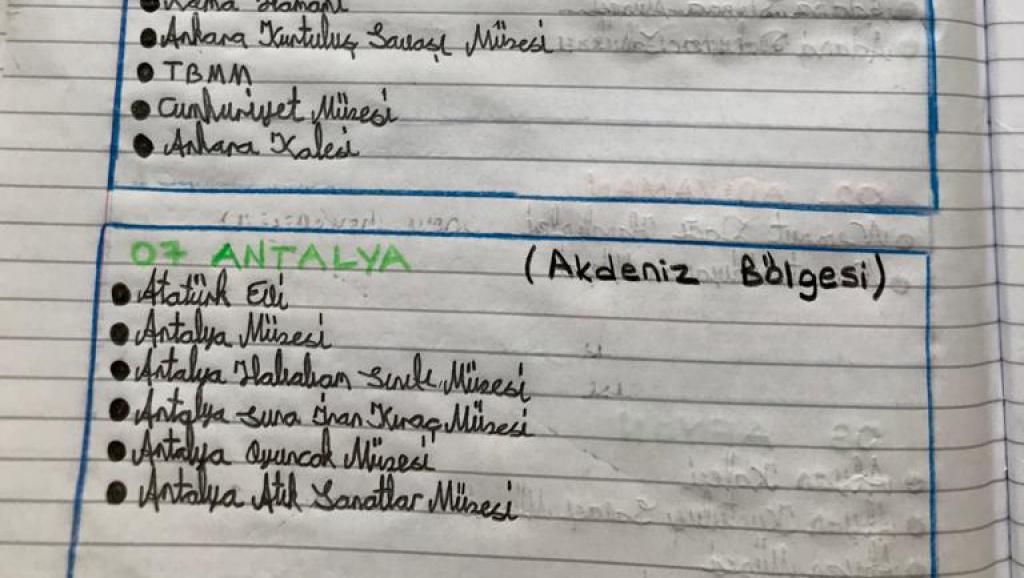 Hamamı
● Ankara Kurtuluş Savaşı Müzesi
● TBMM
● Cumhuriyet Müzesi
● Ankara Kalesi
07 ANTALYA (Akdeniz Bölgesi)
● Atatürk Evi
● Antalya Müzesi
● Antalya Müzesi
● Antalya Suna İnan Kıraç Müzesi
● Antalya Oyuncak Müzesi
● Antalya Atık Sanatlar Müzesi